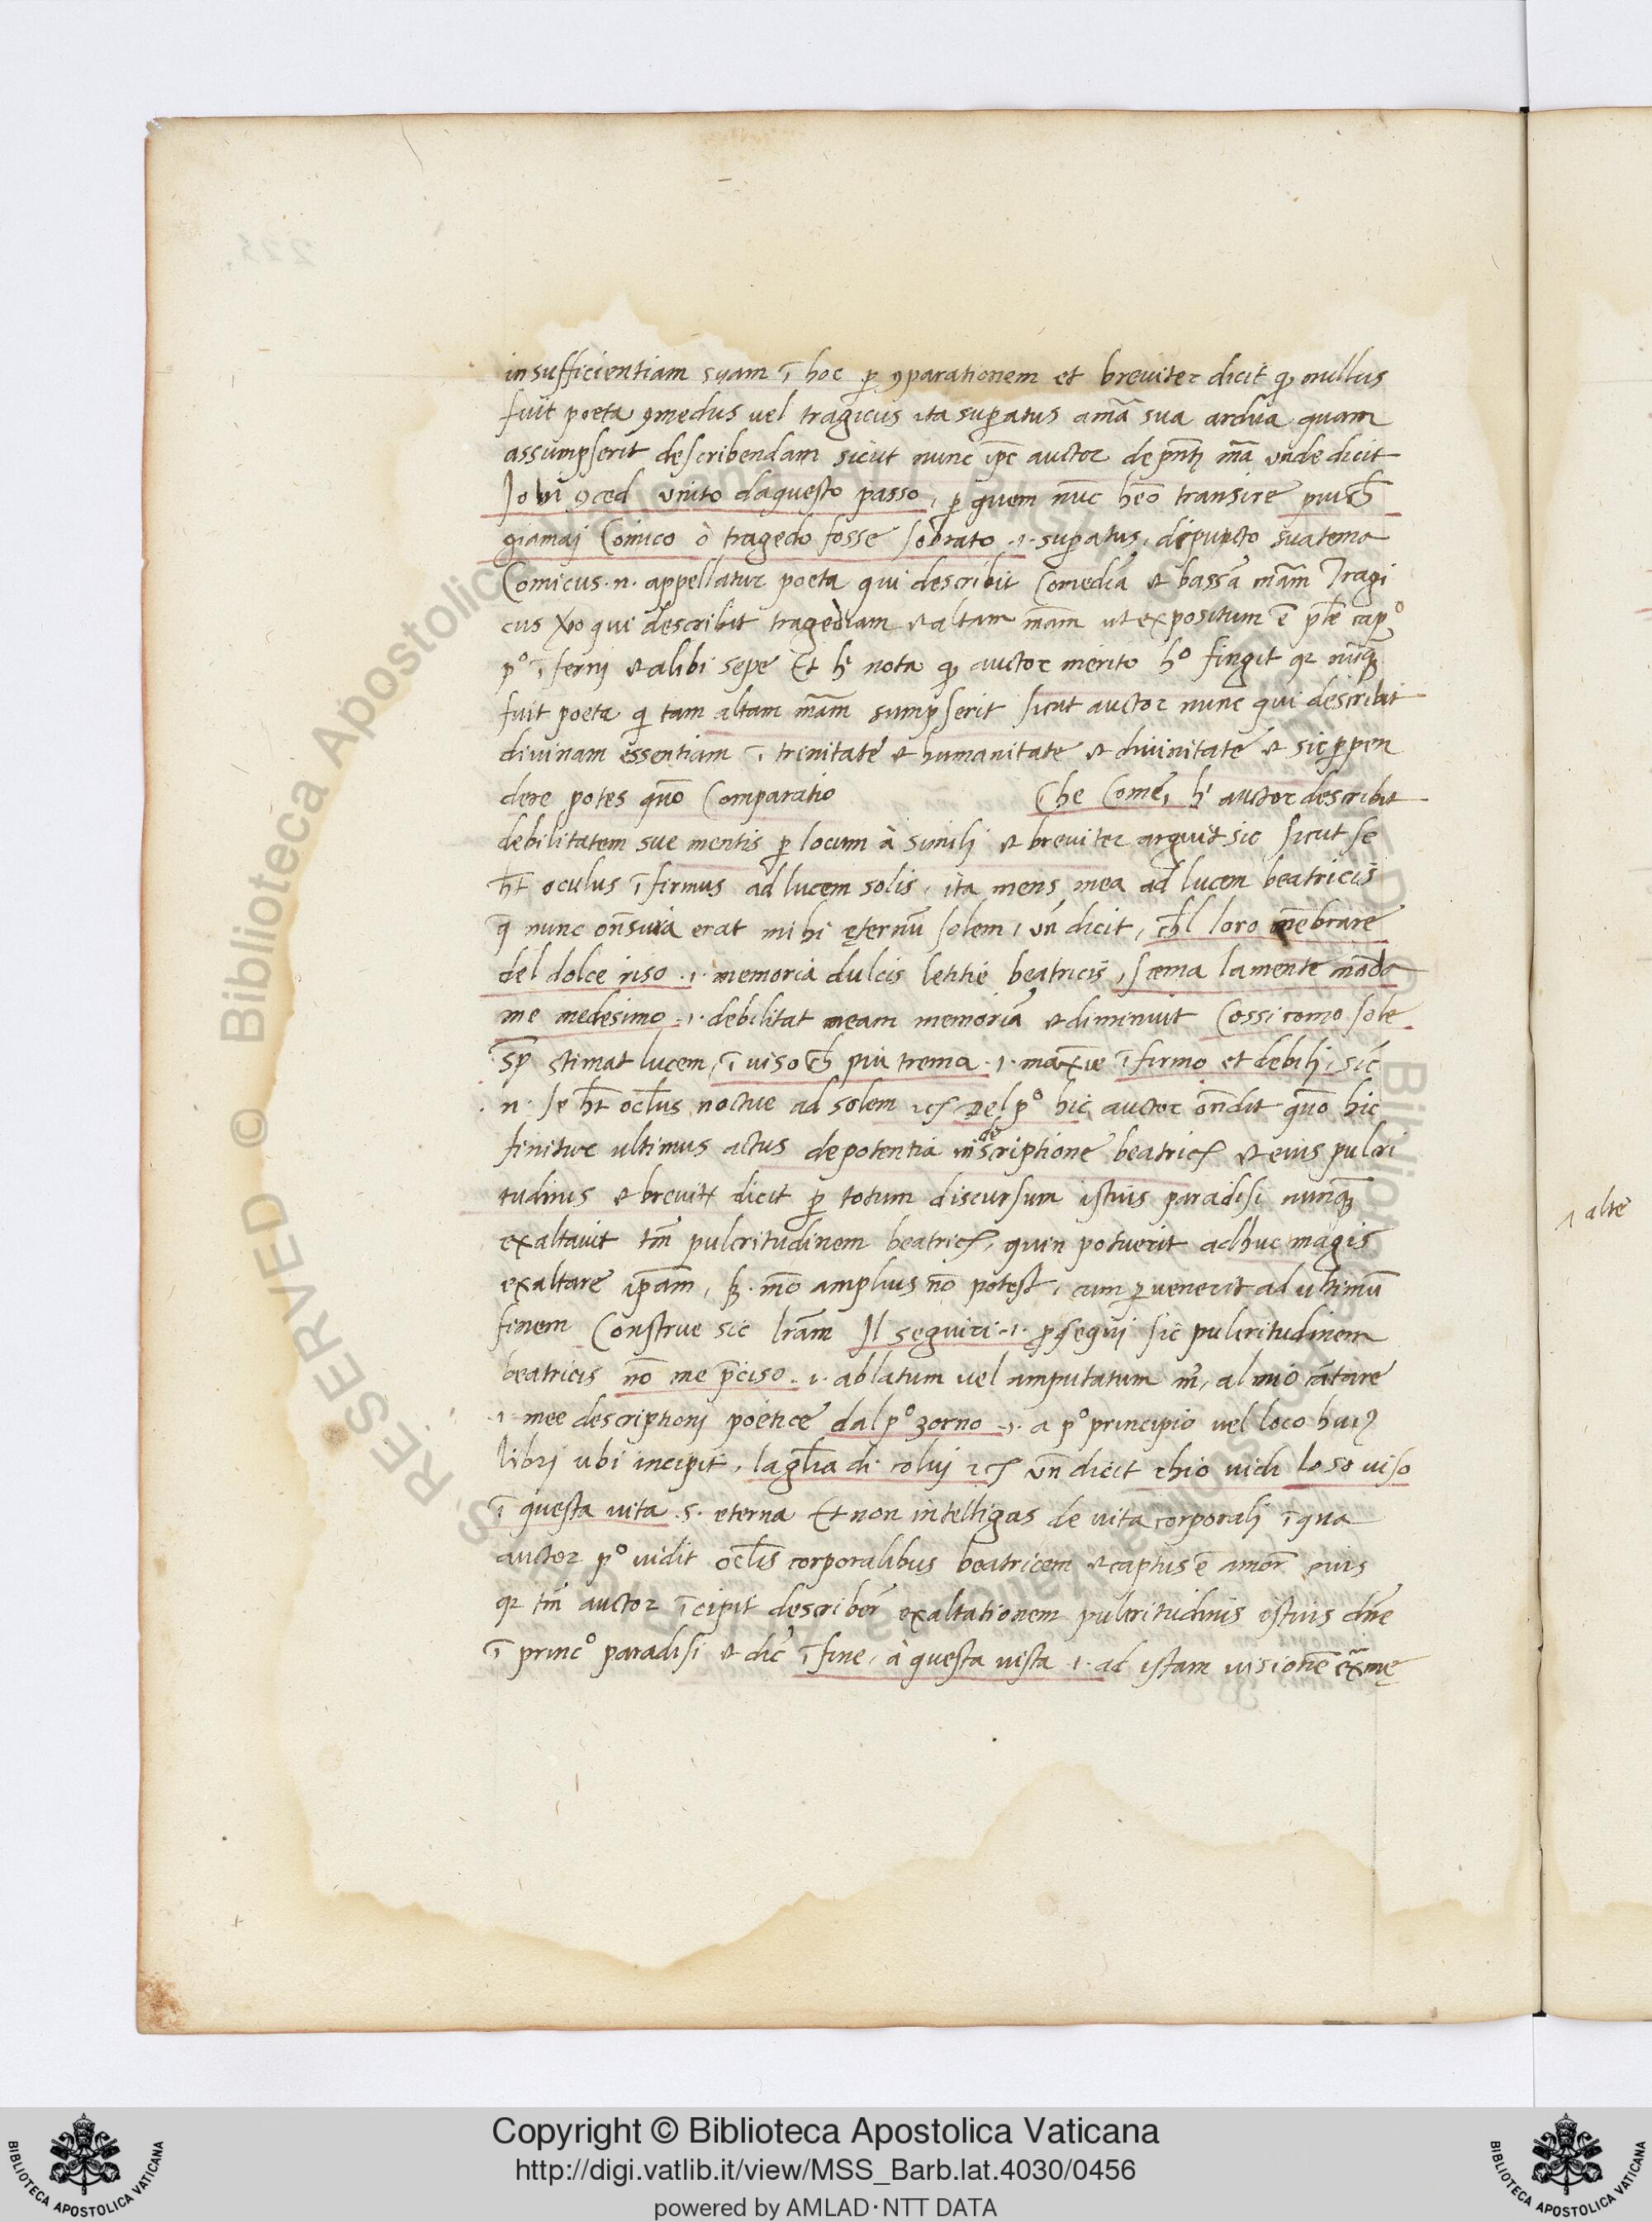 insufficientiam suam ī hoc ꝑ ꝯparationem et breviter dicit ꝙ nullus
fuit poeta ꝯmedus vel tragicus ita suꝑatus a mā sua ardua quam
assumpserit describendam sicut nunc ipē auctor de pn̄ti mā unde dicit
Jo mi ꝯced unito da questo passo, ꝑ quem nūc heo transire piu ch̄
giamaj Comico ò tragedo fosse sobrato .i. suꝑatus, di puncto sua tema
Comicus .n. appellatur poeta qui describit Comediā et bassā mām Tragi
cus ẜo qui describit tragediam et altam mām ut expositum ē pl̄e cap°
p° īferni et alibi sepe Et h̄ nota ꝙ auctor merito h° fingit qr nūq̄
fuit poeta q̄ tam altam mām sumpserit sicut auctor nunc qui describit
divinam essentiam ī trinitate et humanitate et divinitate et sic ꝑpen
dere potes quō Comparatio Che Come, h̄ auctor describit
debilitatem sue mentis ꝑ locum à simili et breviter arguit sic sicut se
ht̄ oculus īfirmus ad lucem solis, ita mens mea ad lucem beatricis
q̄ nunc erat mihi ęternū solem, un̄ dicit, ch̄l loro mēbrare
del dolce riso .i. memoria dulcis letitie beatricis, scema la mente māda
me medesimo .i. debilitat meam memoriā et diminuit Cossi como sole
stimat lucem, ī viso ch̄ piu trema .i. maxīe īfirmo et debili, sic
.n. se ht̄ ocl̄us noctue ad solem etc̄ Del p° hic auctor ōndit quō hic
finitur ultimus actus de potentia in descriptione beatricꝭ et eius pulcri
tudinis et brevitr̄ dicit ꝑ totum discursum istius paradisi nunquā
exaltavit tm̄ pulcritudinem beatricꝭ, quin potuerit adhuc magis
exaltare ip̄am, sꝫ mō amplius nō potest, cum ꝑvenerit ad ultimū
finem Construe sic lr̄am Il seguiri .i. ꝓsequi sic pulcritudinem
beatricis nō me p̄ciso .i. ablatum vel amputatum m̄, al mio cātare
.i. mee descriptioni poetice dal p° zorno .i. a p° principio vel loco huiꝰ
libri ubi incipit, la gl̄ia di colui etc̄ un̄ dicit chio vidi lo so viso
ī questa vita .s. eterna Et non intelligas de vita corporali ī qua
auctor p° vidit ocl̄is corporalibus beatricem et captus ē amor̄ eius
qr tm̄ auctor īcipit describer̄ exaltationem pulcritudinis istius dn̄e
ī princ° paradisi et dic̄ ī fine, à questa vista .i. ad istam visionē
alte
Copyright © Biblioteca Apostolica Vaticana
http://digi.vatlib.it/view/MSS_Barb.lat.4030/0456
powered by AMLAD·NTT DATA